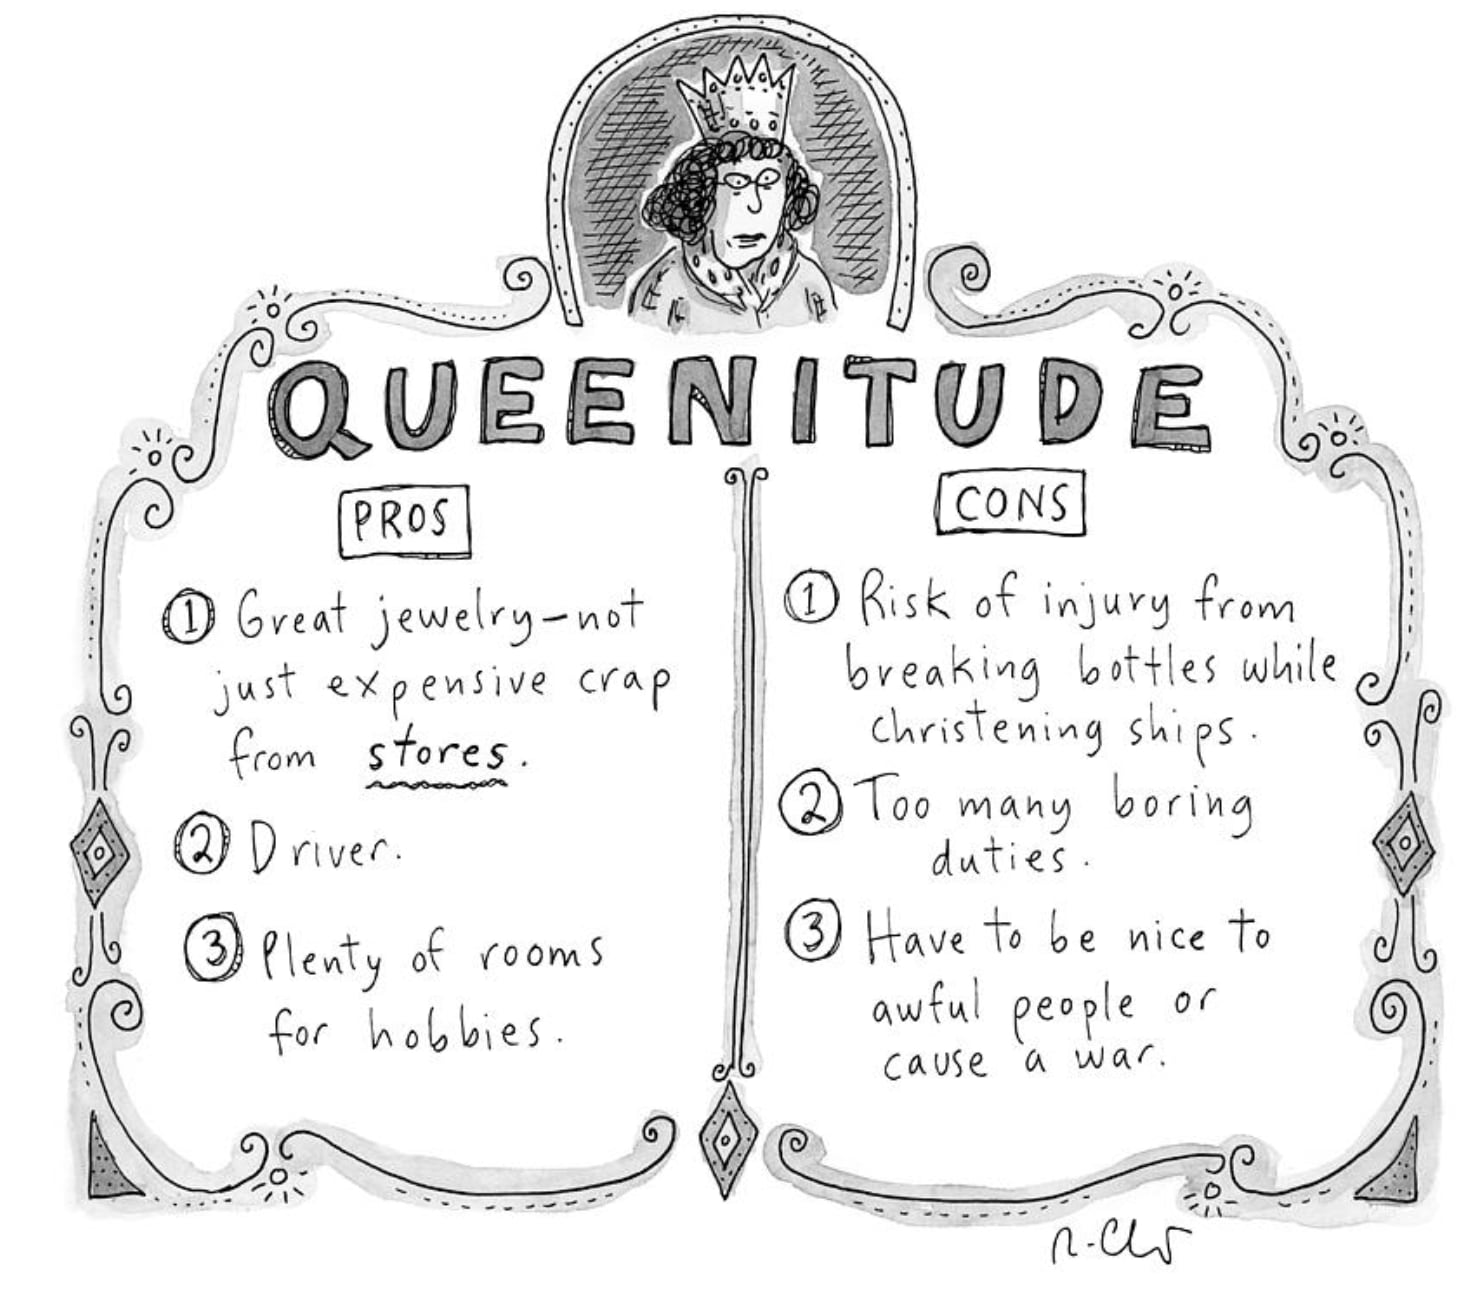 QUEENITUDE
PROS
① Great jewelry—not
just expensive crap
from stores.
② Driver.
③ Plenty of rooms
for hobbies.
CONS
① Risk of injury from
breaking bottles while
christening ships.
② Too many boring
duties.
③ Have to be nice to
awful people or
cause a war.